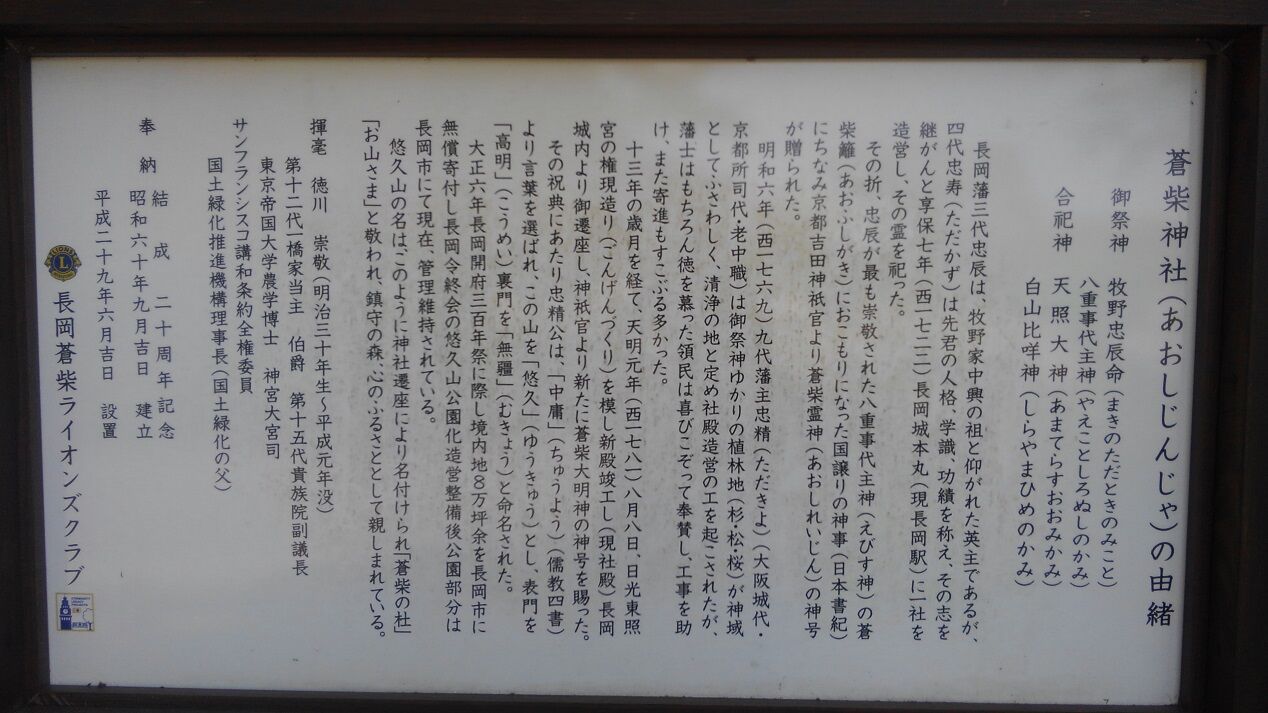 蒼柴神社(あおしじんじゃ)の由緒
御祭神 牧野忠辰命(まきのただときのみこと)
八重事代主神(やえことしろぬしのかみ)
合祀神 天照大神(あまてらすおおみかみ)
白山比咩神(しらやまひめのかみ)
長岡藩三代忠辰は、牧野家中興の祖と仰がれた英主であるが、
四代忠寿(ただかず)は先君の人格、学識、功績を称え、その志を
継がんと享保七年(西一七二二)長岡城本丸(現長岡駅)に一社を
造営し、その霊を祀った。
その折、忠辰が最も崇敬された八重事代主神(えびす神)の蒼
柴籬(あおふしがき)におこもりになった国譲りの神事(日本書紀)
にちなみ京都吉田神祇官より蒼柴霊神(あおしれいじん)の神号
が贈られた。
明和六年(西一七六九)九代藩主忠精(ただきよ)(大阪城代・
京都所司代・老中職)は御祭神ゆかりの植林地(杉・松・桜)が神域
としてふさわしく、清浄の地と定め社殿造営の工を起こされたが、
藩士はもちろん徳を慕った領民は喜びこぞって奉賛し、工事を助
け、また寄進もすこぶる多かった。
十三年の歳月を経て、天明元年(西一七八一)八月八日、日光東照
宮の権現造り(ごんげんづくり)を模し新殿竣工し(現社殿)長岡
城内より御遷座し、神祇官より新たに蒼柴大明神の神号を賜った。
その祝典にあたり忠精公は、「中庸」(ちゅうよう)(儒教四書)
より言葉を選ばれ、この山を「悠久」(ゆうきゅう)とし、表門を
「高明」(こうめい)裏門を「無疆」(むきょう)と命名された。
大正六年長岡開府三百年祭に際し境内地8万坪余を長岡市に
無償寄付し長岡令終会の悠久山公園化造営整備後公園部分は
長岡市にて現在 管理維持されている。
悠久山の名は、このように神社遷座により名付けられ「蒼柴の杜」
「お山さま」と敬われ、鎮守の森、心のふるさととして親しまれている。
揮毫 徳川 崇敬(明治三十年生~平成元年没)
第十二代一橋家当主 伯爵 第十五代貴族院副議長
東京帝国大学農学博士 神宮大宮司
サンフランシスコ講和条約全権委員
国土緑化推進機構理事長(国土緑化の父)
奉納 結成 二十周年記念
昭和六十年九月吉日 建立
平成二十九年六月吉日 設置
長岡蒼柴ライオンズクラブ
LIONS
L